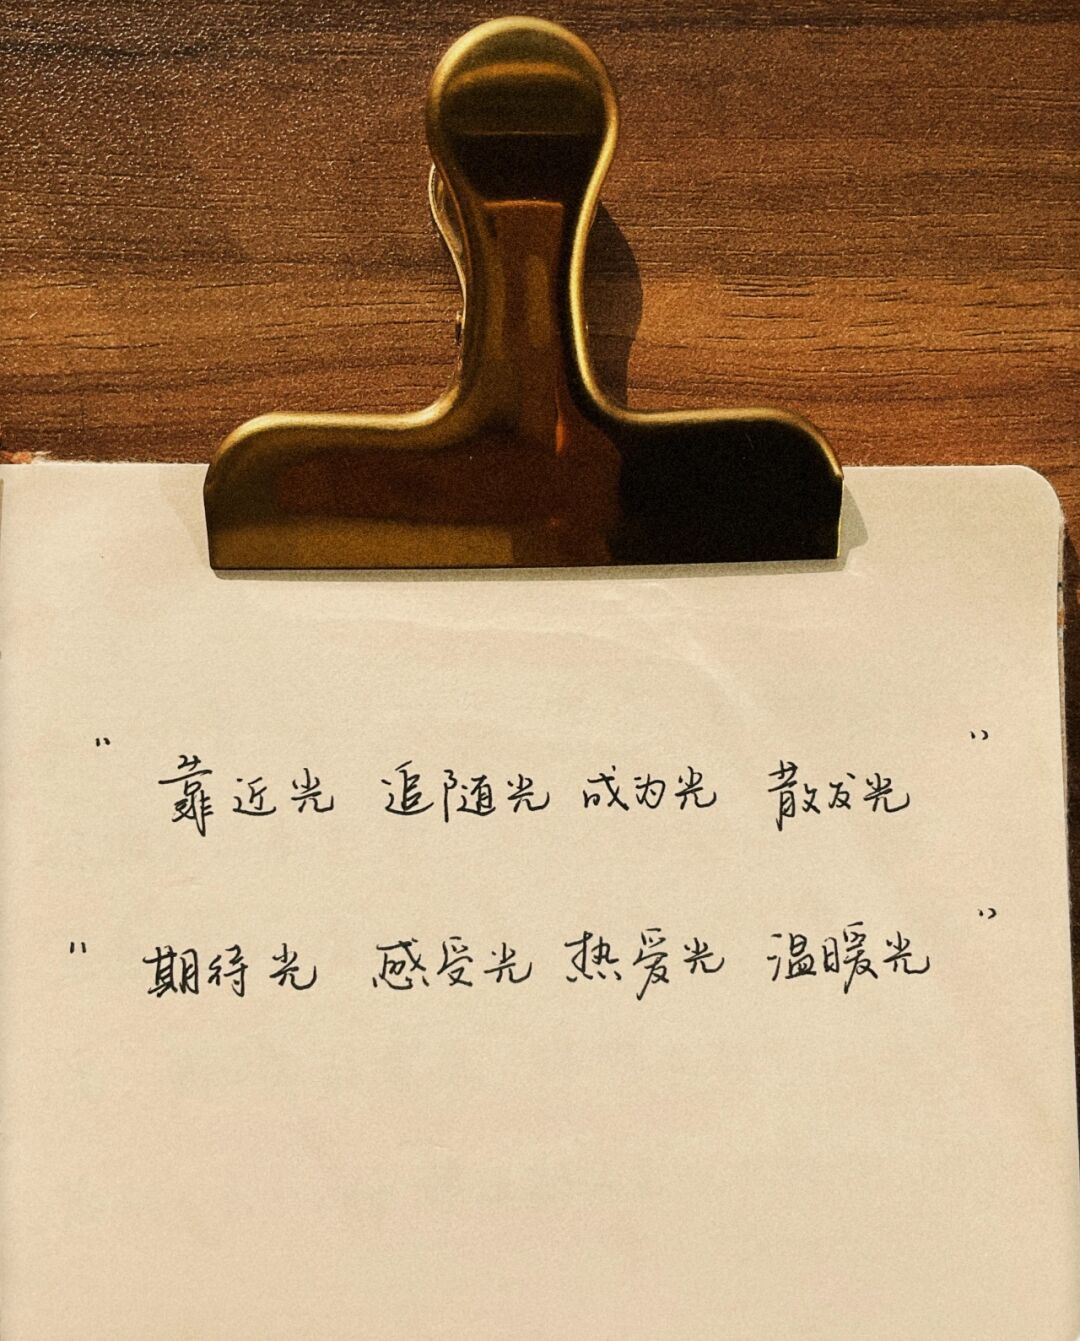 “ 靠近光 追随光 成为光 散发光 ”
“ 期待光 感受光 热爱光 温暖光 ”